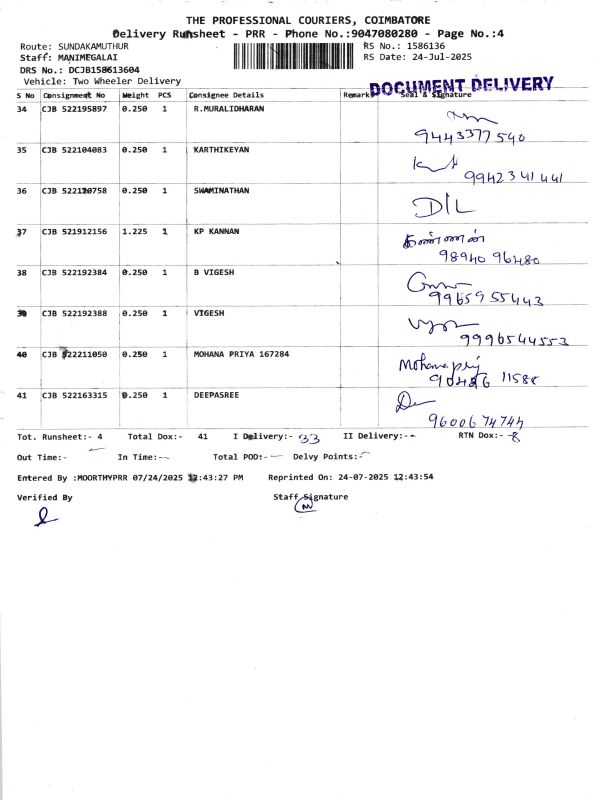 THE PROFESSIONAL COURIERS, COIMBATORE
Delivery Runsheet - PRR - Phone No.:9047080280 - Page No.:4
Route: SUNDAKAMUTHUR RS No.: 1586136
Staff: MANIMEGALAI RS Date: 24-Jul-2025
DRS No.: DCJB158613604
Vehicle: Two Wheeler Delivery
DOCUMENT DELIVERY
S No Consignment No Weight PCS Consignee Details Remark Seal & Signature
34 CJB 522195897 0.250 1 R.MURALIDHARAN
9443377590
35 CJB 522104083 0.250 1 KARTHIKEYAN
9942341441
36 CJB 522120758 0.250 1 SWAMINATHAN
D/L
37 CJB 521912156 1.225 1 KP KANNAN கண்ணன்
98940 96480
38 CJB 522192384 0.250 1 B VIGESH
9965955443
39 CJB 522192388 0.250 1 VIGESH
9996544553
40 CJB 522211050 0.250 1 MOHANA PRIYA 167284 Mohanapriy
90486 11588
41 CJB 522163315 0.250 1 DEEPASREE
9600674744
Tot. Runsheet:- 4 Total Dox:- 41 I Delivery:- 33 II Delivery:-- RTN Dox:- 8
Out Time:- In Time:-- Total POD:- Delvy Points:-
Entered By :MOORTHYPRR 07/24/2025 12:43:27 PM Reprinted On: 24-07-2025 12:43:54
Verified By Staff Signature